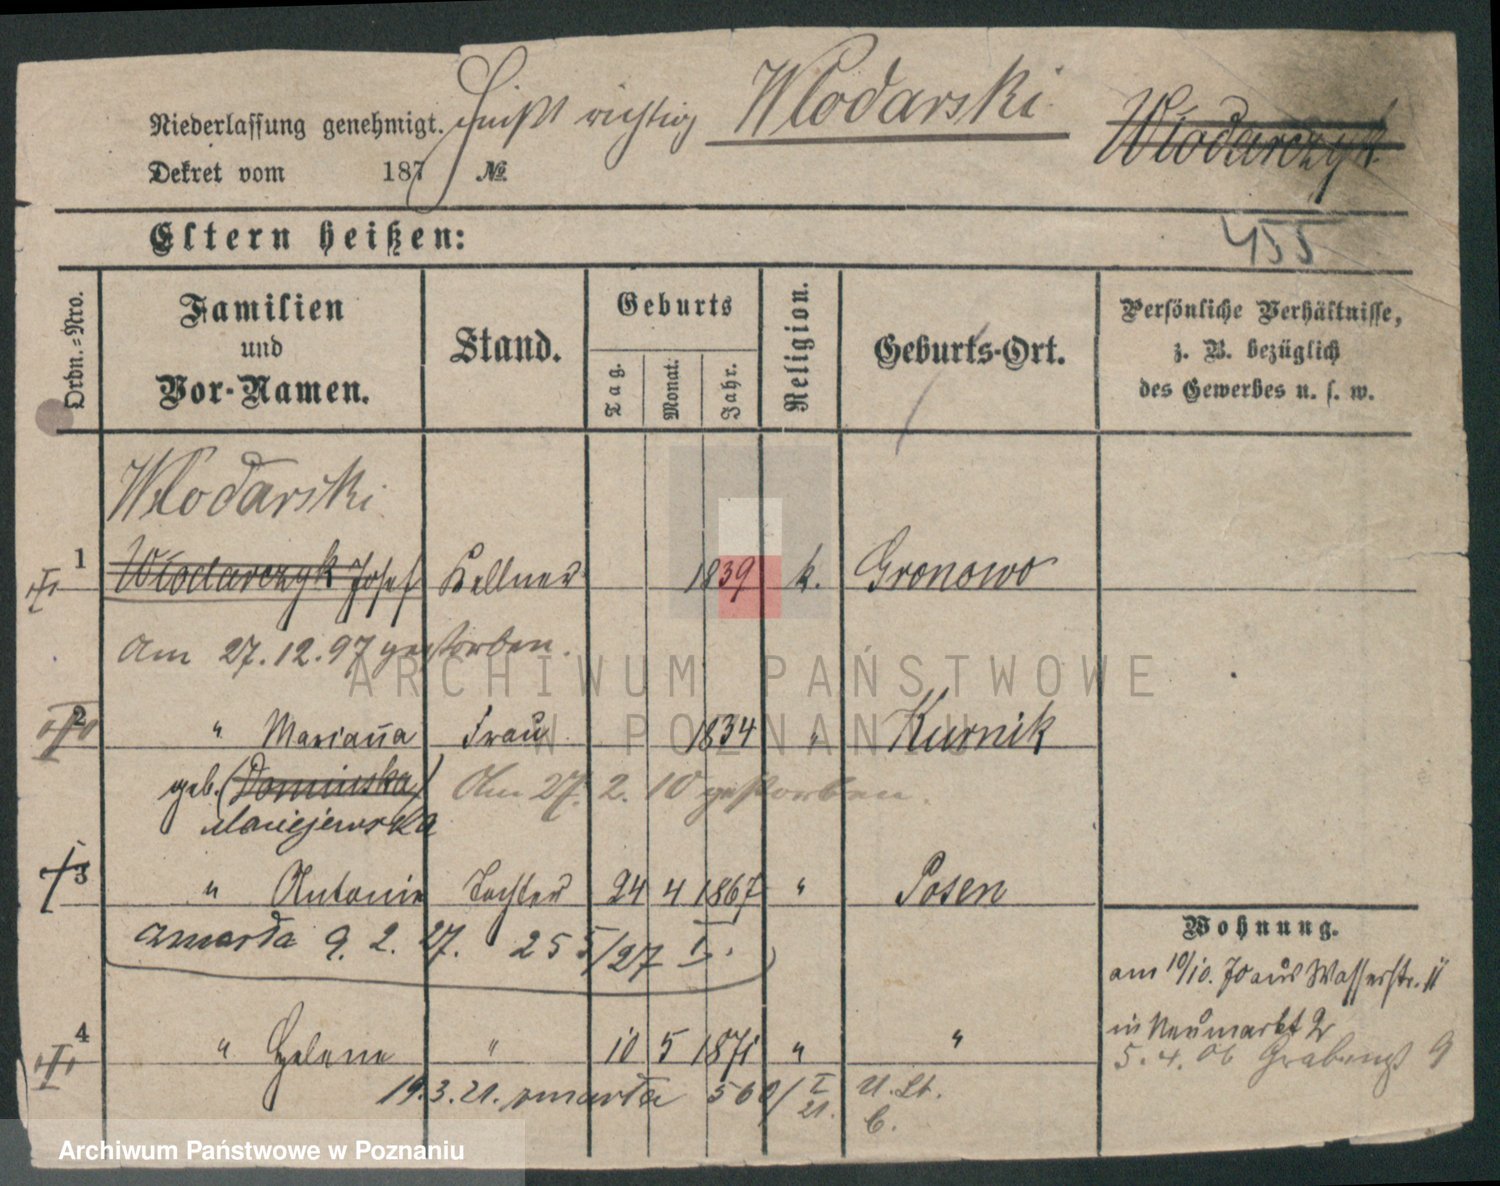 Niederlassung genehmigt. heißt richtig Wlodarski Wlodarczyk
Dekret vom 187 №
Eltern heißen: 455
Ordn.-Nro. Familien und Vor-Namen. Stand. Geburts Tag. Monat. Jahr. Religion. Geburts-Ort. Persönliche Verhältnisse, z. B. bezüglich des Gewerbes u. s. w.
Wlodarski
1 Wlodarczyk Josef Kellner 1839 k. Gronowo
Am 27.12.97 gestorben.
2 " Marianna Frau 1834 " Kurnik
geb. (Dominska) Am 27. 2. 10 gestorben.
Maciejewska
3 " Antonie Tochter 24 4 1867 " Posen
zmarła 9. 2. 27. 255/27 I.
4 " Helene " 10 5 1871 " "
19.3.21. zmarła 560/I 21. U. St. C.
Wohnung.
am 10/10. 70 aus Wasserstr. 11
in Neumarkt 2
5. 4. 06 Grabenst 9
ARCHIWUM PAŃSTWOWE
W POZNANIU
Archiwum Państwowe w Poznaniu